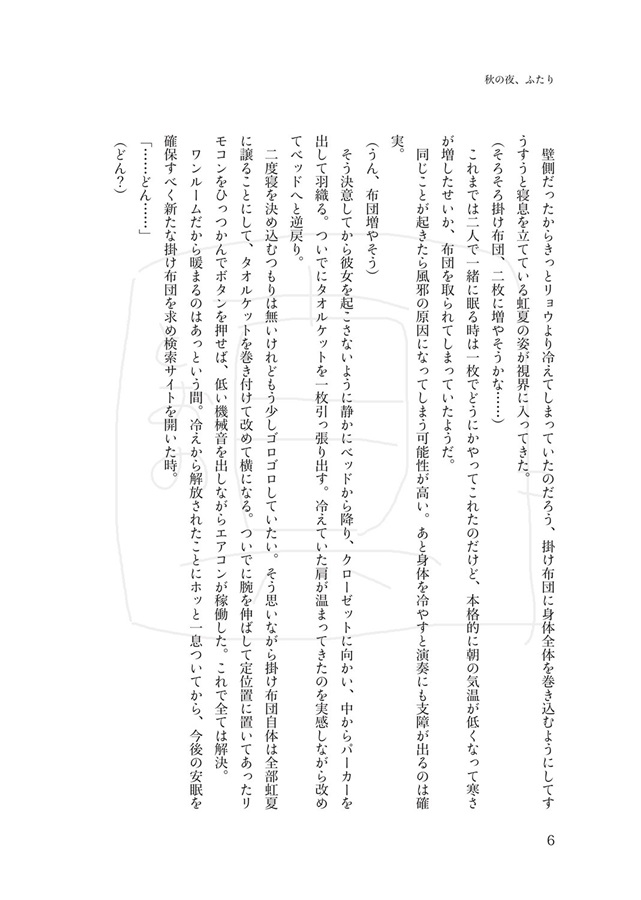 秋の夜、ふたり
　壁側だったからきっとリョウより冷えてしまっていたのだろう、掛け布団に身体全体を巻き込むようにしてす
うすうと寝息を立てている虹夏の姿が視界に入ってきた。
（そろそろ掛け布団、二枚に増やそうかな……）
　これまでは二人で一緒に眠る時は一枚でどうにかやってこれたのだけど、本格的に朝の気温が低くなって寒さ
が増したせいか、布団を取られてしまっていたようだ。
　同じことが起きたら風邪の原因になってしまう可能性が高い。あと身体を冷やすと演奏にも支障が出るのは確
実。
（うん、布団増やそう）
　そう決意してから彼女を起こさないように静かにベッドから降り、クローゼットに向かい、中からパーカーを
出して羽織る。ついでにタオルケットを一枚引っ張り出す。冷えていた肩が温まってきたのを実感しながら改め
てベッドへと逆戻り。
　二度寝を決め込むつもりは無いけれどもう少しゴロゴロしていたい。そう思いながら掛け布団自体は全部虹夏
に譲ることにして、タオルケットを巻き付けて改めて横になる。ついでに腕を伸ばして定位置に置いてあったリ
モコンをひっつかんでボタンを押せば、低い機械音を出しながらエアコンが稼働した。これで全ては解決。
　ワンルームだから暖まるのはあっという間。冷えから解放されたことにホッと一息ついてから、今後の安眠を
確保すべく新たな掛け布団を求め検索サイトを開いた時。
「……どん……」
（どん？）
6